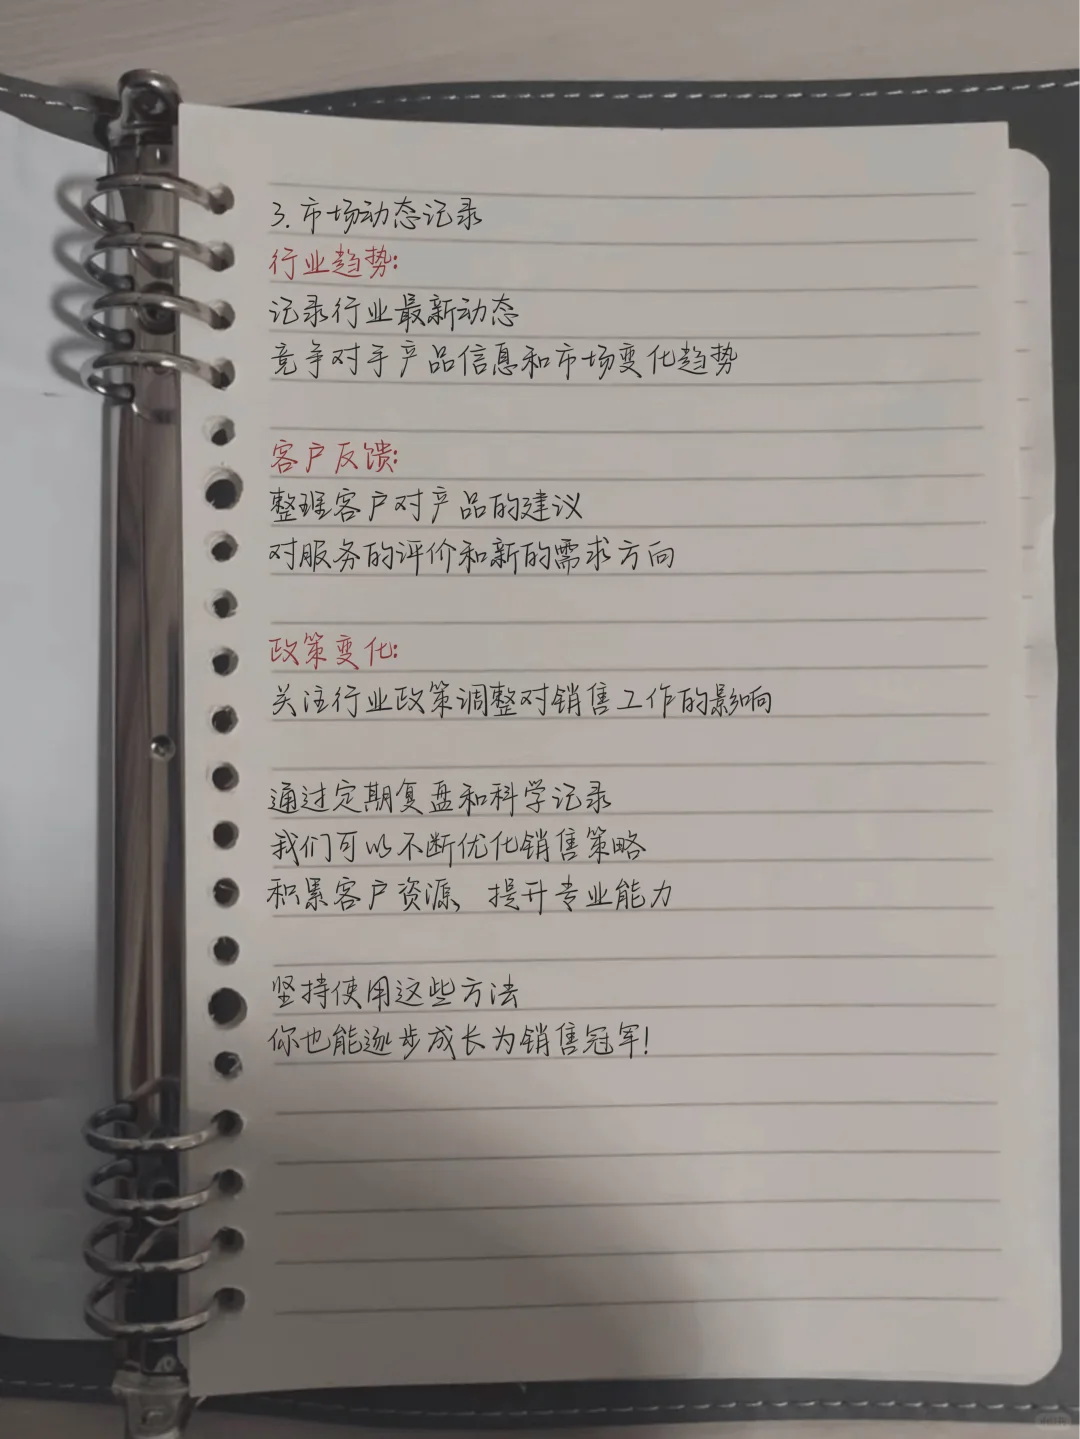 3.市场动态记录
行业趋势:
记录行业最新动态
竞争对手产品信息和市场变化趋势
客户反馈:
整理客户对产品的建议
对服务的评价和新的需求方向
政策变化:
关注行业政策调整对销售工作的影响
通过定期复盘和科学记录
我们可以不断优化销售策略
积累客户资源、提升专业能力
坚持使用这些方法
你也能逐步成长为销售冠军!